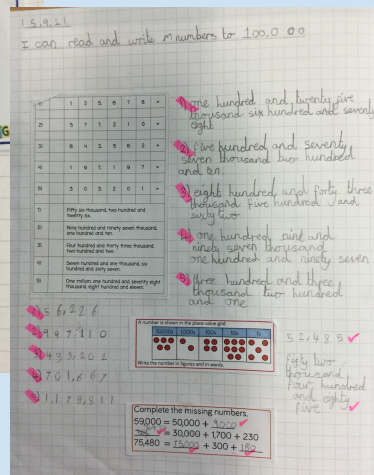 15.9.21
I can read and write numbers to 100,000
1) 1 2 5 6 7 8 =
2) 5 7 7 2 1 0 =
3) 8 4 3 5 6 2 =
4) 1 9 7 1 9 7 =
5) 3 0 3 2 0 1 =
1) Fifty six thousand, two hundred and
twenty six.
2) Nine hundred and ninety seven thousand,
one hundred and ten.
3) Four hundred and thirty three thousand,
two hundred and two.
4) Seven hundred and one thousand, six
hundred and sixty seven.
5) One million, one hundred and seventy eight
thousand, eight hundred and eleven.
1) one hundred and twenty five
thousand six hundred and seventy
eight
2) five hundred and seventy
seven thousand two hundred
and ten.
3) eight hundred and forty three
thousand five hundred and
sixty two
4) one hundred and
ninety seven thousand
one hundred and ninety seven
5) three hundred and three
thousand two hundred
and one
1) 56,226
2) 997,110
3) 433,202
4) 701,667
5) 1,178,811
A number is shown in the place value grid.
10,000s 1,000s 100s 10s 1s
Write the number in figures and in words.
52,485
fifty two
thousand
four hundred
and eighty
five
Complete the missing numbers.
59,000 = 50,000 + 9000
= 30,000 + 1,700 + 230
75,480 = 75000 + 300 + 180